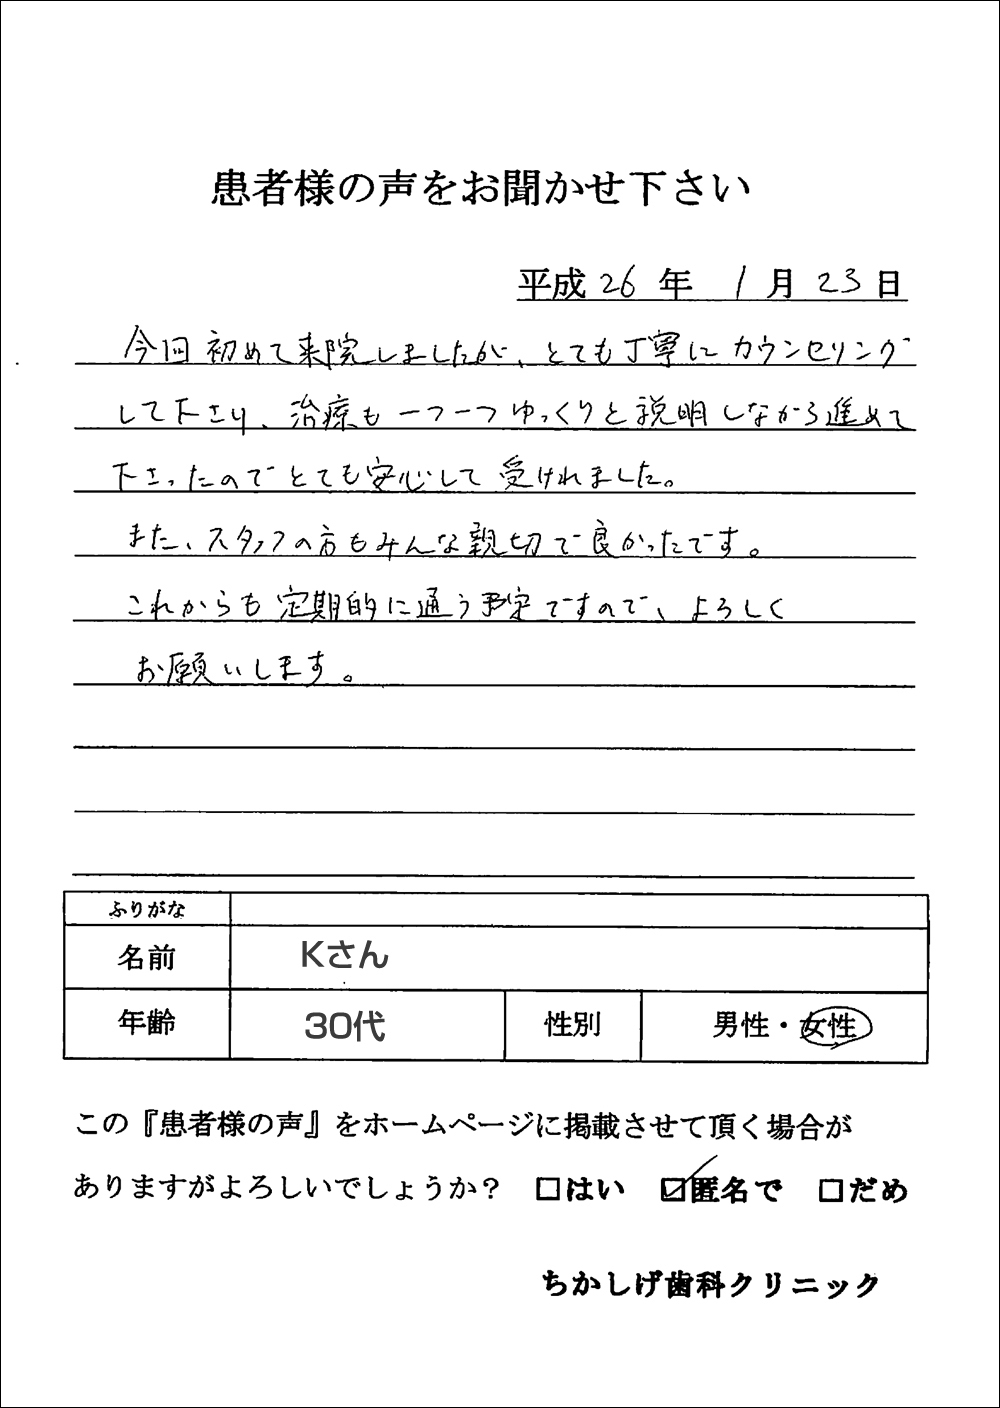 患者様の声をお聞かせ下さい
平成 26 年 1 月 23 日
今回 初めて来院しましたが、とても丁寧にカウンセリング
して下さり、治療も一つ一つゆっくりと説明しながら進めて
下さったのでとても安心して受けれました。
また、スタッフの方もみんな親切で良かったです。
これからも定期的に通う予定ですので、よろしく
お願いします。
ふりがな
名前 Kさん
年齢 30代 性別 男性・女性
この『患者様の声』をホームページに掲載させて頂く場合が
ありますがよろしいでしょうか? □はい ☑匿名で □だめ
ちかしげ歯科クリニック